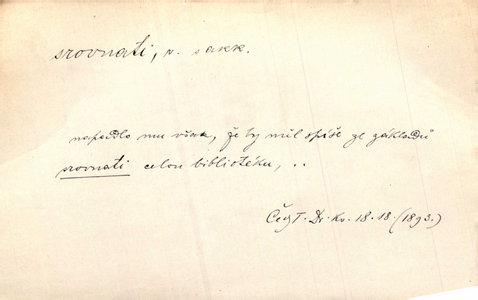 srovnati, v. s akk.
napadlo mu však, že by měl spíše ze základů
srovnati celou bibliotéku, ..
Čes. Dr. kv. 18. 18. (1893.)